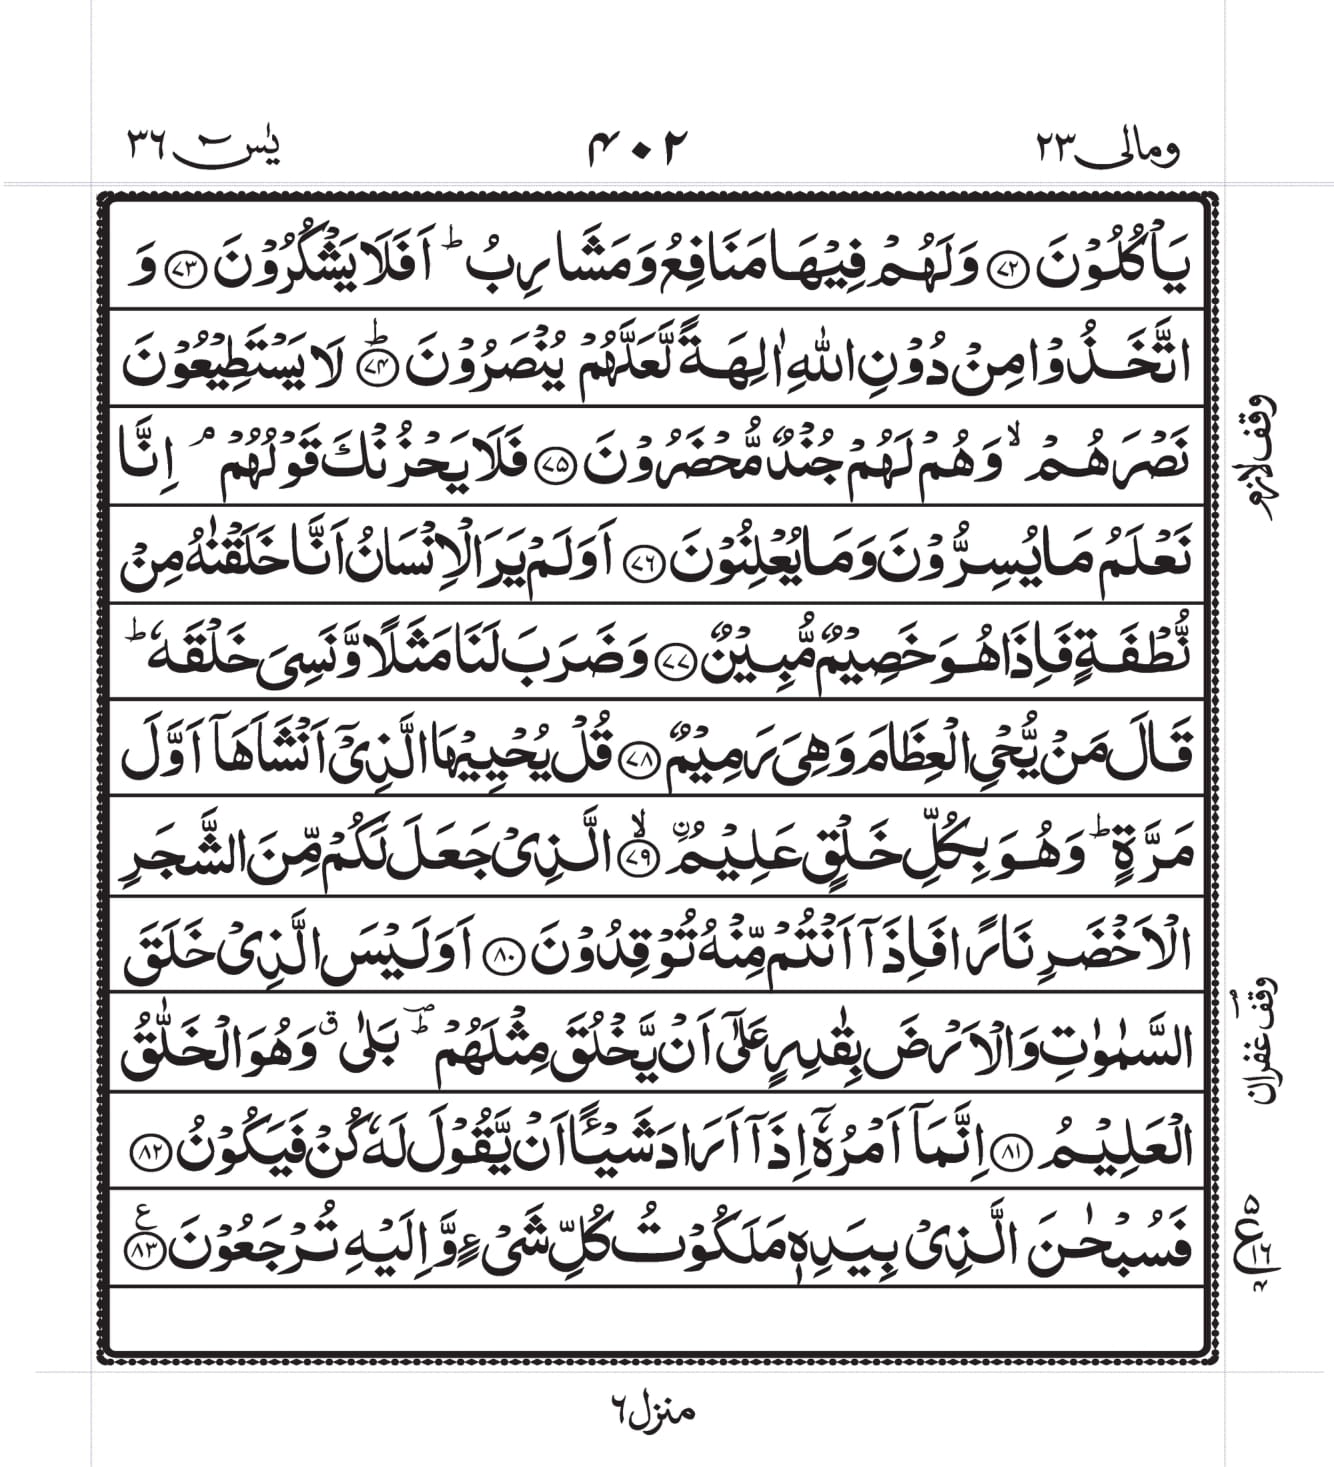 ومالی ٢٣
۴۰۲
یٰسٓ ٣٦
يَاْكُلُوْنَ ﴿٧٢﴾ وَلَهُمْ فِيْهَا مَنَافِعُ وَمَشَارِبُ ؕ اَفَلَا يَشْكُرُوْنَ ﴿٧٣﴾ وَ
اتَّخَذُوْا مِنْ دُوْنِ اللّٰهِ اٰلِهَةً لَّعَلَّهُمْ يُنْصَرُوْنَ ﴿٧٤﴾ؕ لَا يَسْتَطِيْعُوْنَ
نَصْرَهُمْ ۙ وَهُمْ لَهُمْ جُنْدٌ مُّحْضَرُوْنَ ﴿٧٥﴾ فَلَا يَحْزُنْكَ قَوْلُهُمْ ۘ اِنَّا
نَعْلَمُ مَا يُسِرُّوْنَ وَمَا يُعْلِنُوْنَ ﴿٧٦﴾ اَوَلَمْ يَرَ الْاِنْسَانُ اَنَّا خَلَقْنٰهُ مِنْ
نُّطْفَةٍ فَاِذَا هُوَ خَصِيْمٌ مُّبِيْنٌ ﴿٧٧﴾ وَضَرَبَ لَنَا مَثَلًا وَّنَسِىَ خَلْقَهٗ ؕ
قَالَ مَنْ يُّحْىِ الْعِظَامَ وَهِىَ رَمِيْمٌ ﴿٧٨﴾ قُلْ يُحْيِيْهَا الَّذِىْۤ اَنْشَاَهَاۤ اَوَّلَ
مَرَّةٍ ؕ وَهُوَ بِكُلِّ خَلْقٍ عَلِيْمُ ۨ ﴿٧٩﴾ۙ الَّذِىْ جَعَلَ لَكُمْ مِّنَ الشَّجَرِ
الْاَخْضَرِ نَارًا فَاِذَاۤ اَنْتُمْ مِّنْهُ تُوْقِدُوْنَ ﴿٨٠﴾ اَوَلَيْسَ الَّذِىْ خَلَقَ
السَّمٰوٰتِ وَالْاَرْضَ بِقٰدِرٍ عَلٰۤى اَنْ يَّخْلُقَ مِثْلَهُمْ ؔؕ بَلٰى ۗ وَهُوَ الْخَلّٰقُ
الْعَلِيْمُ ﴿٨١﴾ اِنَّمَاۤ اَمْرُهٗۤ اِذَاۤ اَرَادَ شَيْـًٔا اَنْ يَّقُوْلَ لَهٗ كُنْ فَيَكُوْنُ ﴿٨٢﴾
فَسُبْحٰنَ الَّذِىْ بِيَدِهٖ مَلَكُوْتُ كُلِّ شَىْءٍ وَّاِلَيْهِ تُرْجَعُوْنَ ﴿٨٣﴾ ع
وقف لازم
وقف غفران
۵
ع
١٦
۴
منزل ٦